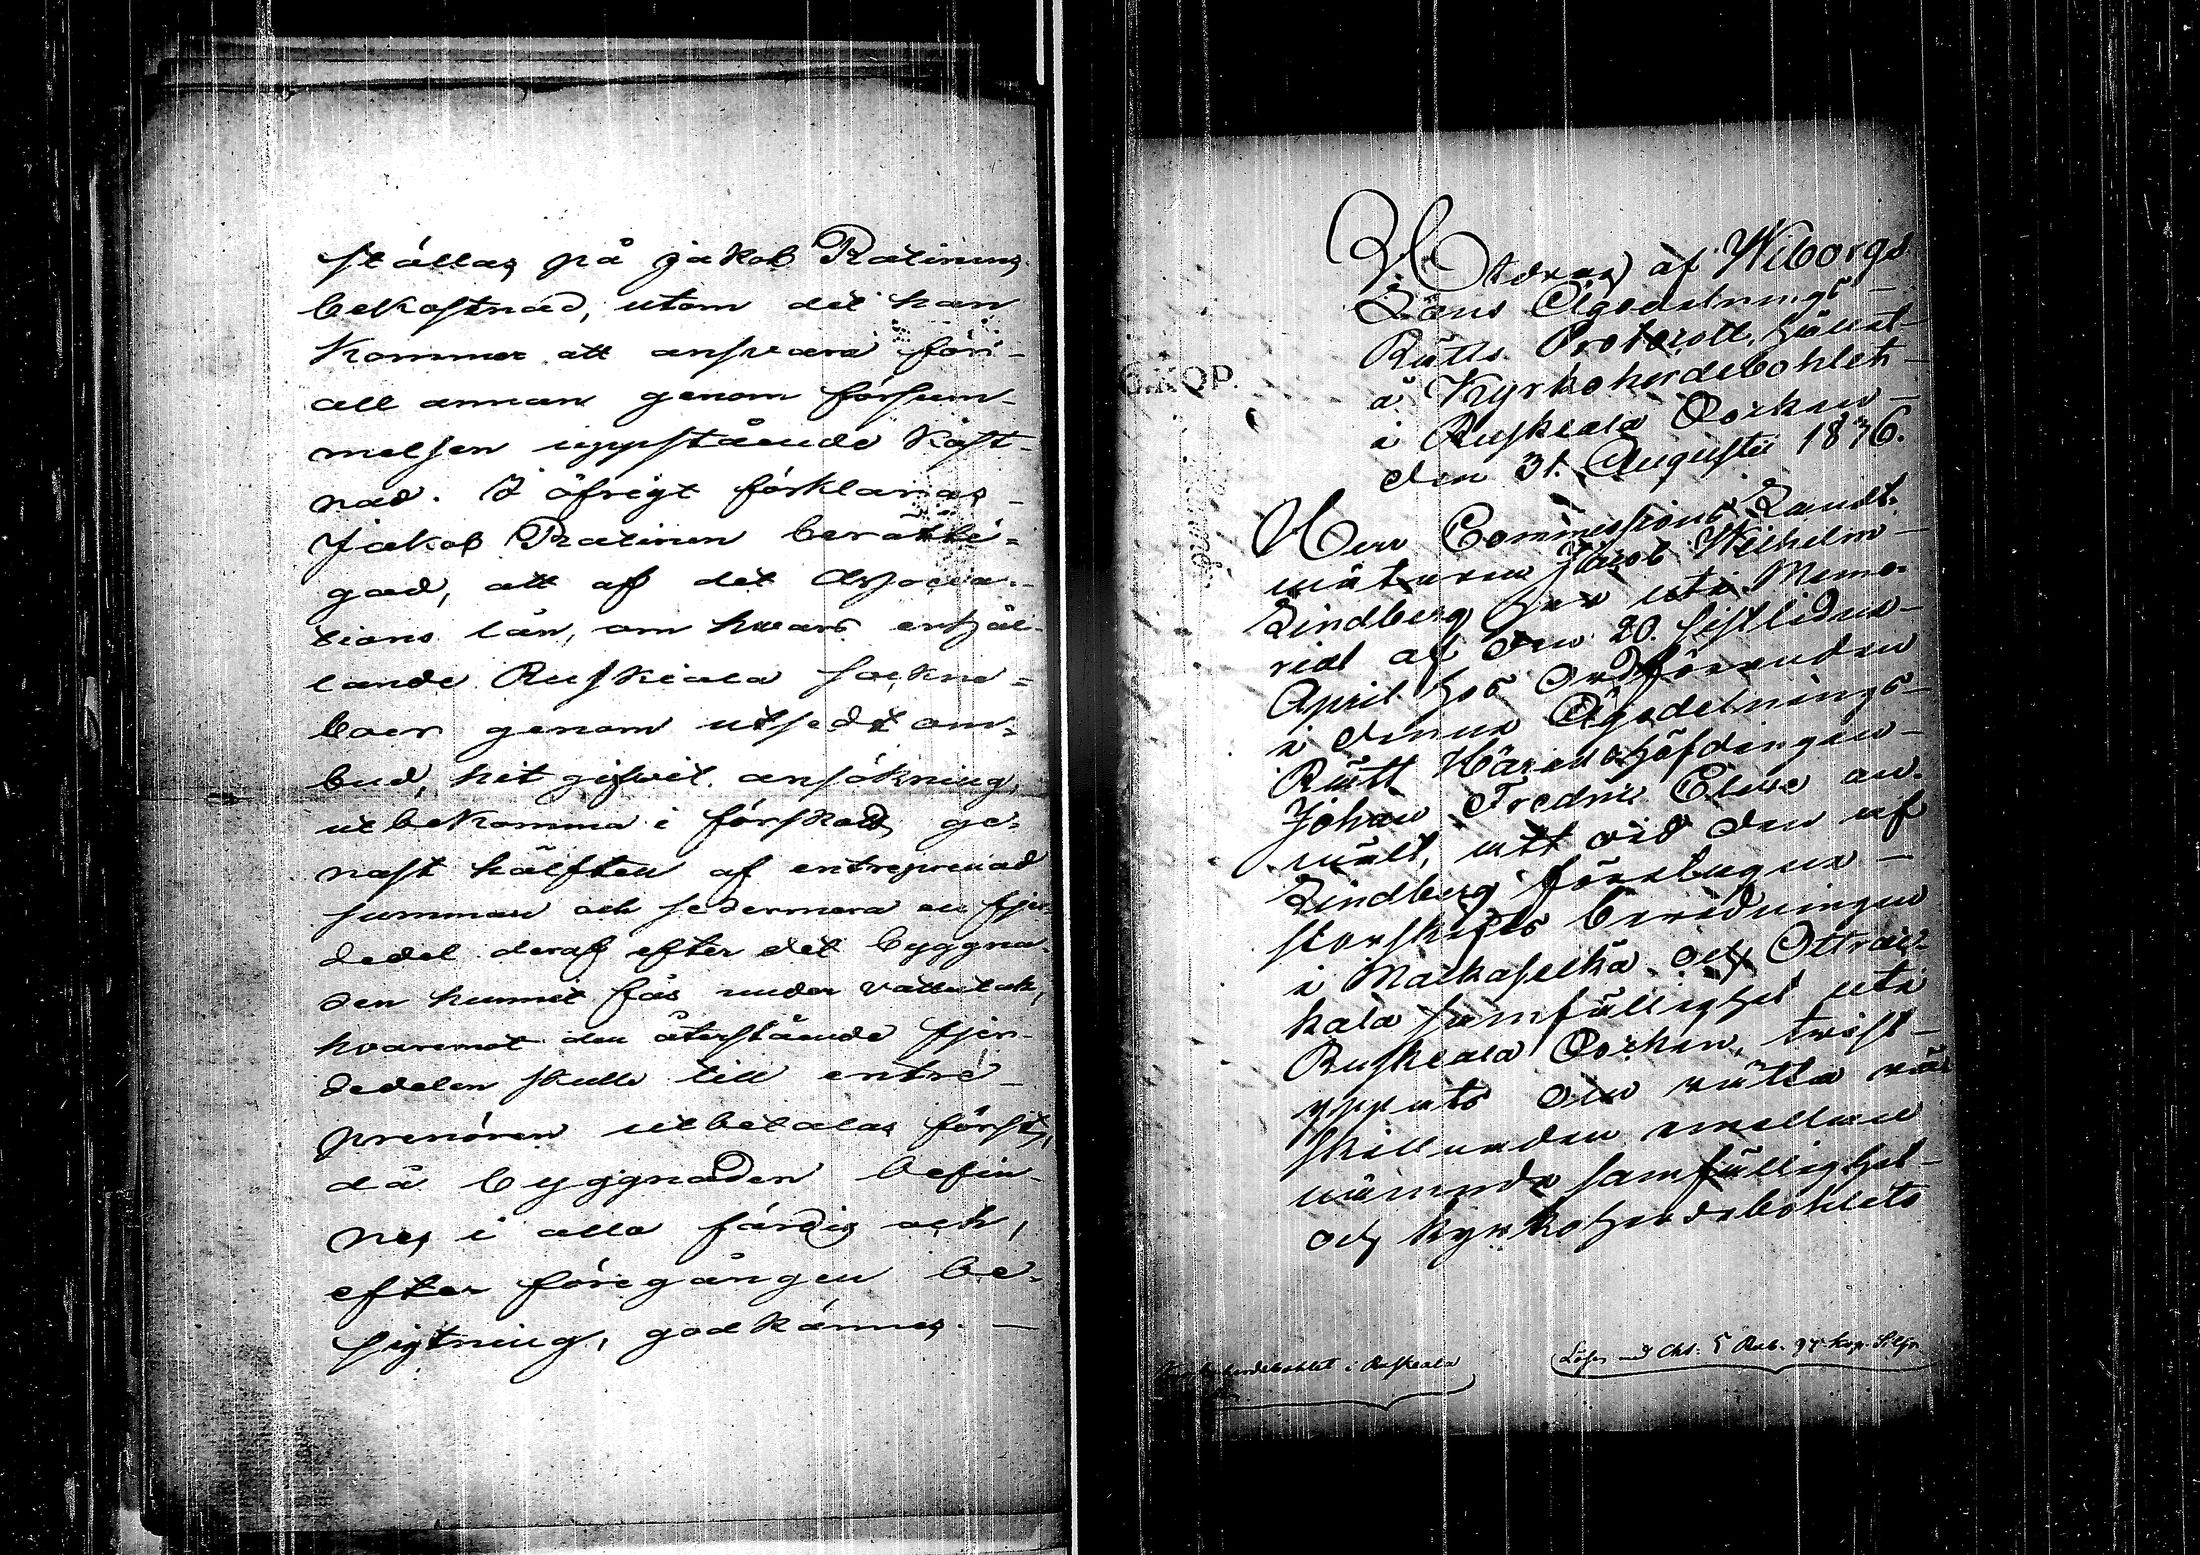 ställas på Jakob Ratinens
bekostnad, utom det han
kommer att ansvara för
all annan genom försum-
melsen uppstående kost-
nad. I öfrigt förklaras
Jakob Ratinen berätti-
gad, att af det Associa-
tions lån, om hvars erhål-
lande Ruskiala sockne-
boer genom utsedt om-
bud, hit gifvit ansökning,
utbekomma i förskott ge-
nast hälften af entreprenad
summan och sedermera en fjer-
dedel deraf efter det byggna-
den hunnit fås under vattutak,
hvaremot den återstående fjer-
dedelen skulle till entre-
prenören utbetalas först,
då byggnaden befin-
nes i allo färdig och,
efter föregången be-
sigtning, godkännes.
Utdrag af Wiborgs
Läns Ägodelnings-
Rätts Protocoll, hållet
å Kyrkoherdebohlet
i Ruskeala Socken
den 31. Augusti 1836.
Herr Commissions Landt-
mätaren Jacob Wilhelm
Lindberg har uti Memo-
rial af den 20. sistlidne
April hos Ordföranden
i denne Ägodelnings-
Rätt Häradshöfdingen
Johan Fredric Elwe an-
mält, att vid den af
Lindberg företagne
storskifts beredningen
i Matkaselkä och Ottrai-
kala samfällighet uti
Ruskeala Socken, tvist
yppats om rätta rå-
skillnaden emellan
nämnde samfällighet
och Kyrkoherdebohlets
Kyrkoherdebohlet i Ruskeala
Lösen med Chs: 5 Rub. 97 kop. Silfver
KOP.